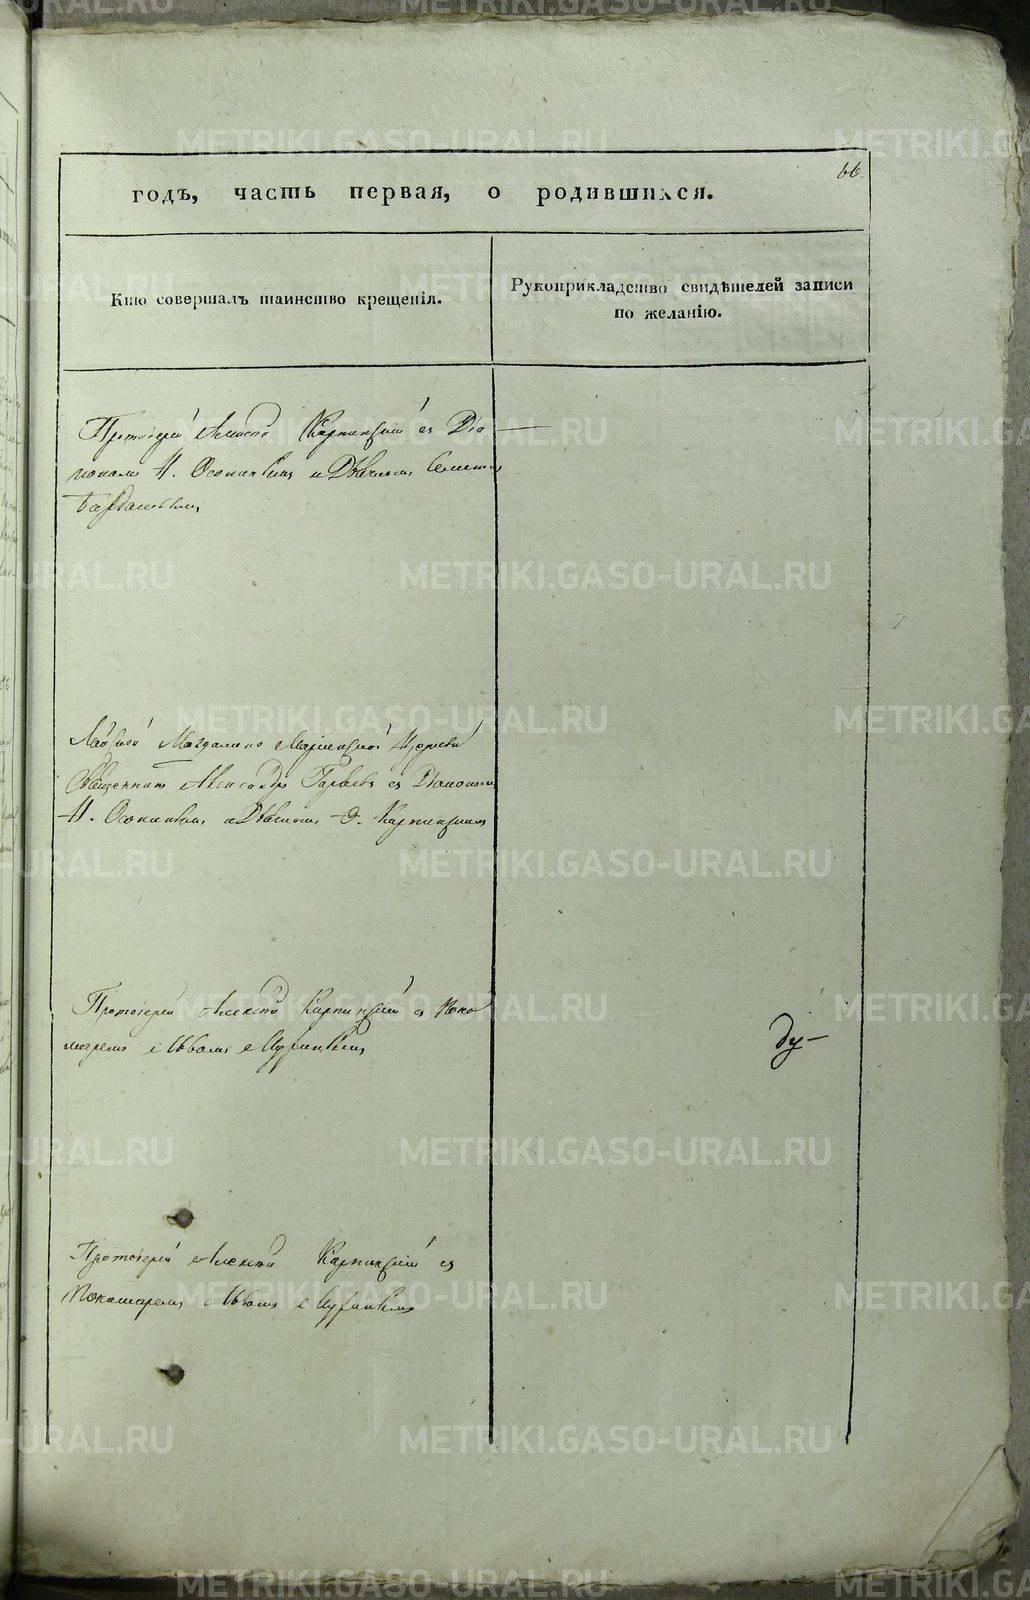 66.
годъ, часть первая, о родившихся.
Кто совершалъ таинство крещенія.
Рукоприкладство свидѣтелей записи
по желанію.
Протоіерей Алексѣй Карпинскій съ Діа
кономъ И. Осокинымъ и Дьячкомъ
Магдалино Маріинской Церкви
Священникъ Александръ съ Діакономъ
И. Осокинымъ и Дьячкомъ Карпинскимъ
Протоіерей Алексѣй Карпинскій съ Поно
маремъ Иваномъ
Протоіерей Алексѣй Карпинскій съ
Пономаремъ Иваномъ
METRIKI.GASO-URAL.RU